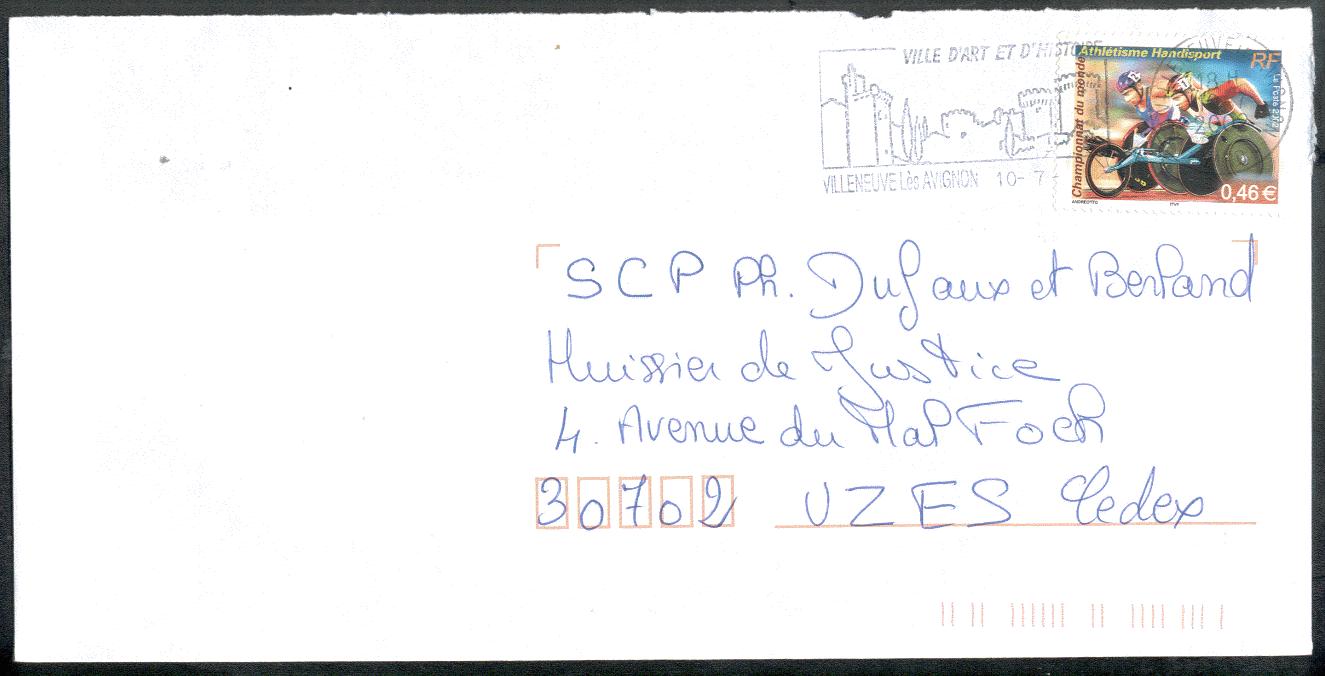 VILLE D'ART ET D'HISTOIRE
VILLENEUVE Lès AVIGNON 10-7-
Athlétisme Handisport
Championnat du monde
RF
La Poste
0,46 €
ANDREOTTO
ITVF
18 H
SCP Ph. Dufaux et Berland
Huissier de Justice
4. Avenue du Mal Foch
30702 UZES Cedex